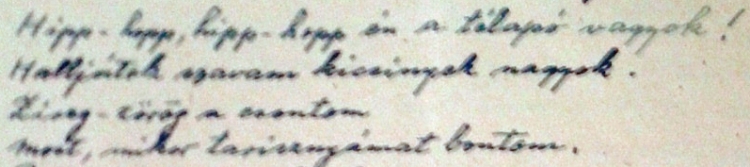 Hipp-hopp, hipp-hopp én a télapó vagyok!
Halljátok szavam kicsinyek nagyok.
Zireg-zörög a csontom
most, mikor tarisznyámat bontom.